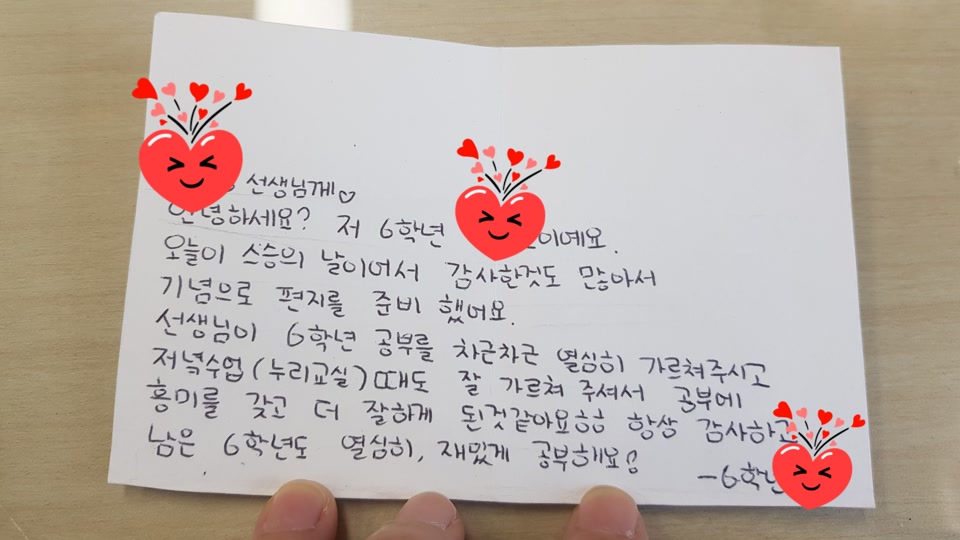 선생님께♡
안녕하세요? 저 6학년 이예요.
오늘이 스승의 날이어서 감사한것도 많아서
기념으로 편지를 준비 했어요.
선생님이 6학년 공부를 차근차근 열심히 가르쳐주시고
저녁수업(누리교실)때도 잘 가르쳐 주셔서 공부에
흥미를 갖고 더 잘하게 된것같아요ㅎㅎ 항상 감사하고
남은 6학년도 열심히, 재밌게 공부해요!
-6학년